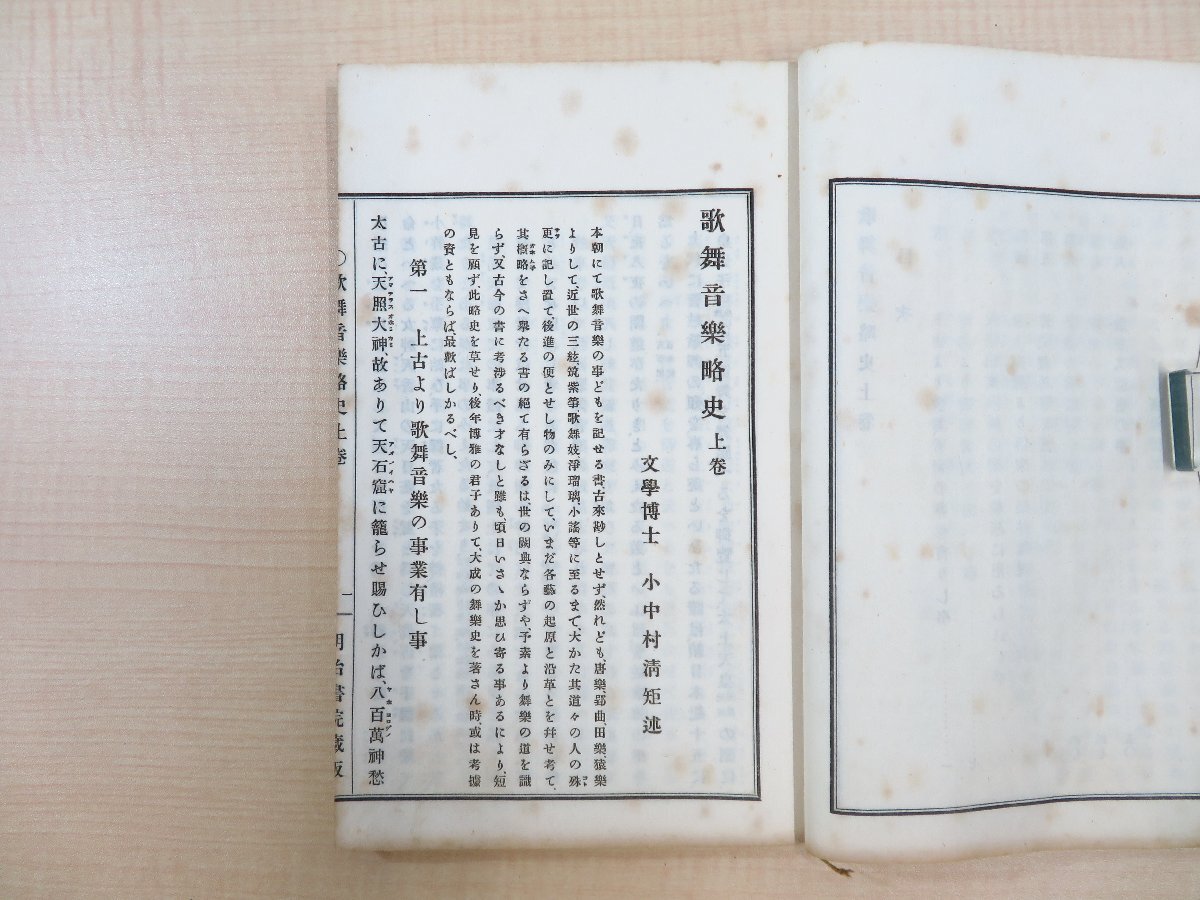 歌舞音樂略史 上卷
文學博士 小中村淸矩述
本朝にて歌舞音樂の事どもを記せる書、古來尠しとせず、然れども、唐樂、郢曲、田樂、猿樂
よりして、近世の三絃、筑紫箏、歌舞妓、淨瑠璃、小謠等に至るまで、大かた其道々の人の殊
更に記し置て、後進の便とせし物のみにして、いまだ各藝の起原と沿革とを幷せ考て、
其槪略をさへ擧たる書の絕て有らざるは、世の闕典ならずや、予素より舞樂の道を識
らず、又古今の書に考涉るべき才なしと雖も、頃日いさゝか思ひ寄る事あるにより、短
見を顧ず、此略史を草せり、後年博雅の君子ありて、大成の舞樂史を著さん時、或は考據
の資ともならば、最歡ばしかるべし、
第一 上古より歌舞音樂の事業有し事
太古に、天照大神、故ありて天石窟に籠らせ賜ひしかば、八百萬神愁
〇歌舞音樂略史上卷 一 明治書院藏版